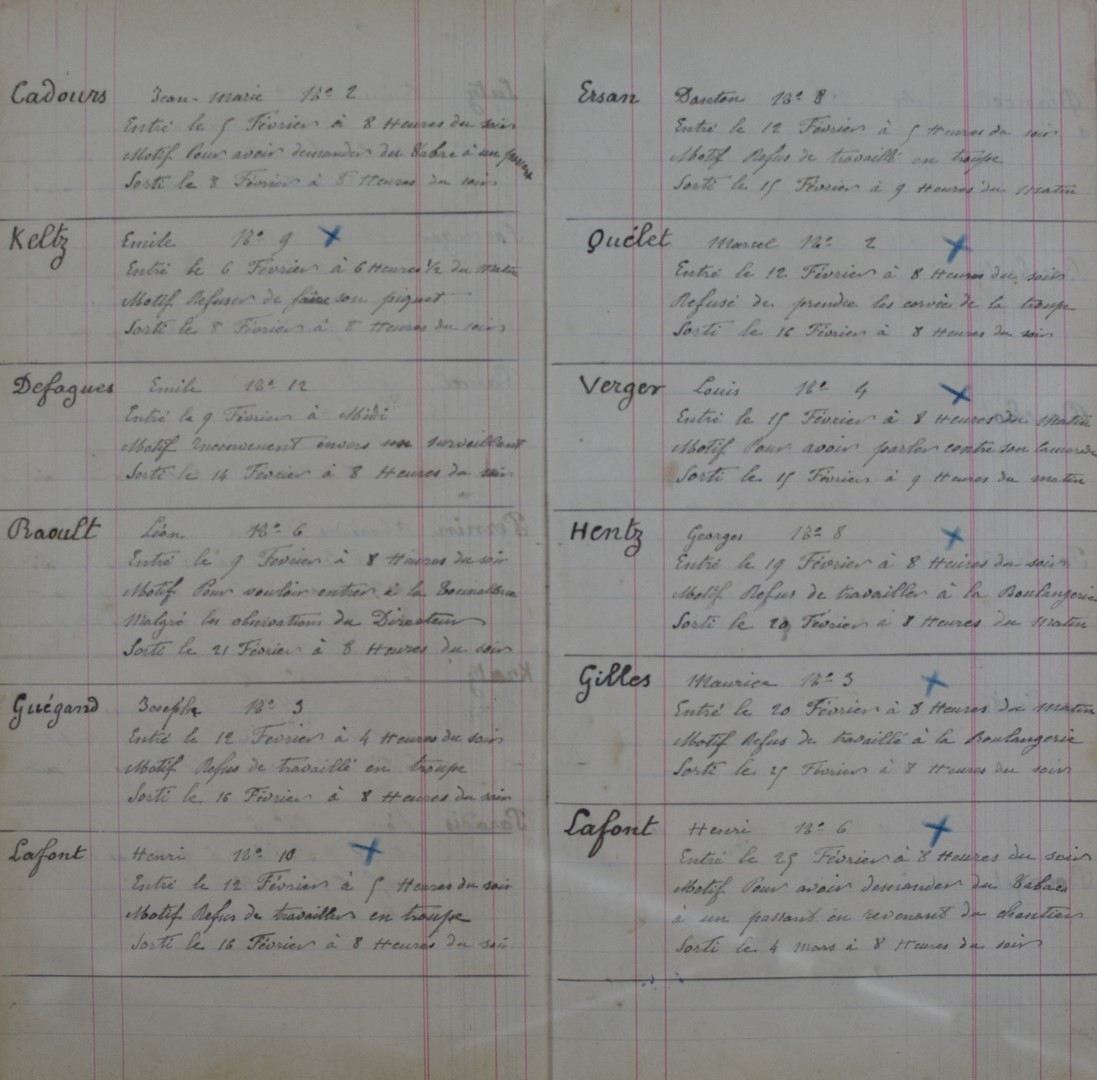 Cadours Jean-Marie No 2
Entré le 5 Février à 8 Heures du soir
Motif Pour avoir demander du Tabac à un passant
Sorti le 8 Février à 8 Heures du soir
Keltz Emile No 9
Entré le 6 Février à 6 Heures 1/2 du matin
Motif Refuser de faire son piquet
Sorti le 8 Février à 8 Heures du soir
Defagues Emile No 12
Entré le 9 Février à Midi
Motif Inconvenent envers son surveillant
Sorti le 14 Février à 8 Heures du soir
Raoult Léon No 6
Entré le 9 Février à 8 Heures du soir
Motif Pour vouloir entrer à la
Malgré les observations du Directeur
Sorti le 21 Février à 8 Heures du soir
Guégand Joseph No 3
Entré le 12 Février à 4 Heures du soir
Motif Refus de travaillé en troupe
Sorti le 16 Février à 8 Heures du soir
Lafont Henri No 10
Entré le 12 Février à 5 Heures du soir
Motif Refus de travailler en troupe
Sorti le 16 Février à 8 Heures du soir
Ersan Danton No 8
Entré le 12 Février à 5 Heures du soir
Motif Refus de travaillé en troupe
Sorti le 15 Février à 9 Heures du Matin
Quélet Marcel No 2
Entré le 12 Février à 8 Heures du soir
Refusé de prendre les corvée de la troupe
Sorti le 16 Février à 8 Heures du soir
Verger Louis No 4
Entré le 15 Février à 8 Heures du Matin
Motif Pour avoir parler contre son camarade
Sorti le 15 Février à 9 Heures du matin
Hentz Georges No 8
Entré le 19 Février à 8 Heures du soir
Motif Refus de travailler à la Boulangerie
Sorti le 20 Février à 8 Heures du Matin
Gilles Maurice No 3
Entré le 20 Février à 8 Heures du matin
Motif Refus de travaillé à la Boulangerie
Sorti le 25 Février à 8 Heures du soir
Lafont Henri No 6
Entré le 25 Février à 8 Heures du soir
Motif Pour avoir demander du Tabac
à un passant en revenant du chantier
Sorti le 4 Mars à 8 Heures du soir